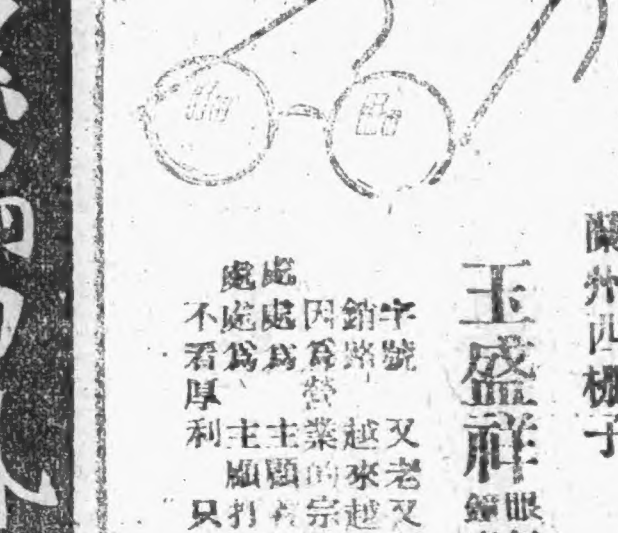 蘭州西柵子
玉盛祥
眼
鐘
字號 又老又
銷路 越來越
因為營業的宗
處處為主顧
處處為主顧打
不看厚利 只